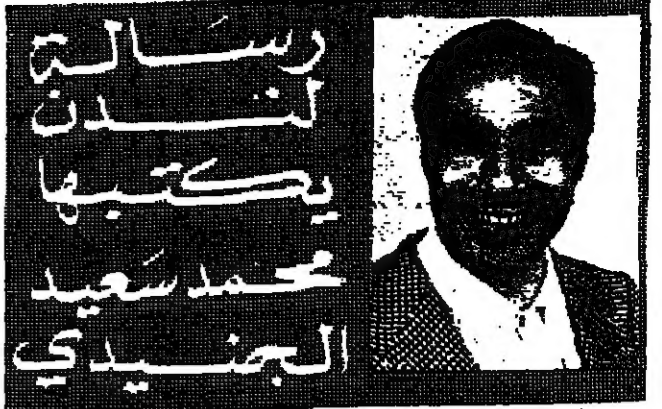 رسالة
لندن
يكتبها
محمد سعيد
الجنيدي